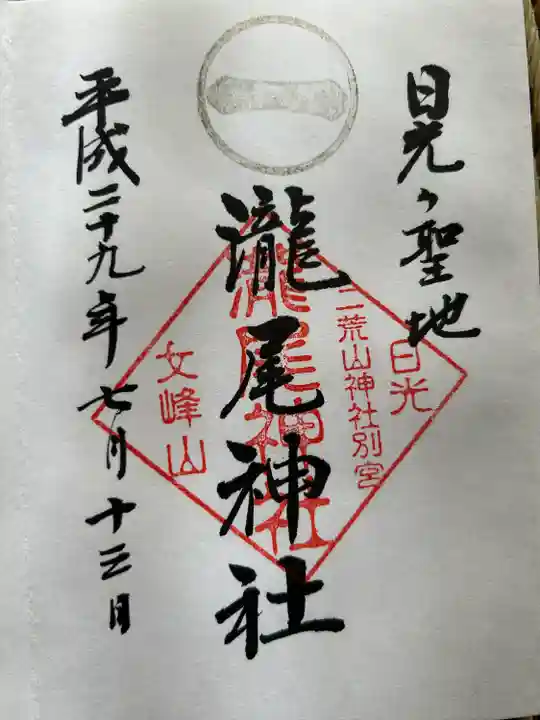 日光ヶ聖地
瀧尾神社
平成二十九年七月十三日
日光
二荒山神社別宮
瀧尾神社
女峰山